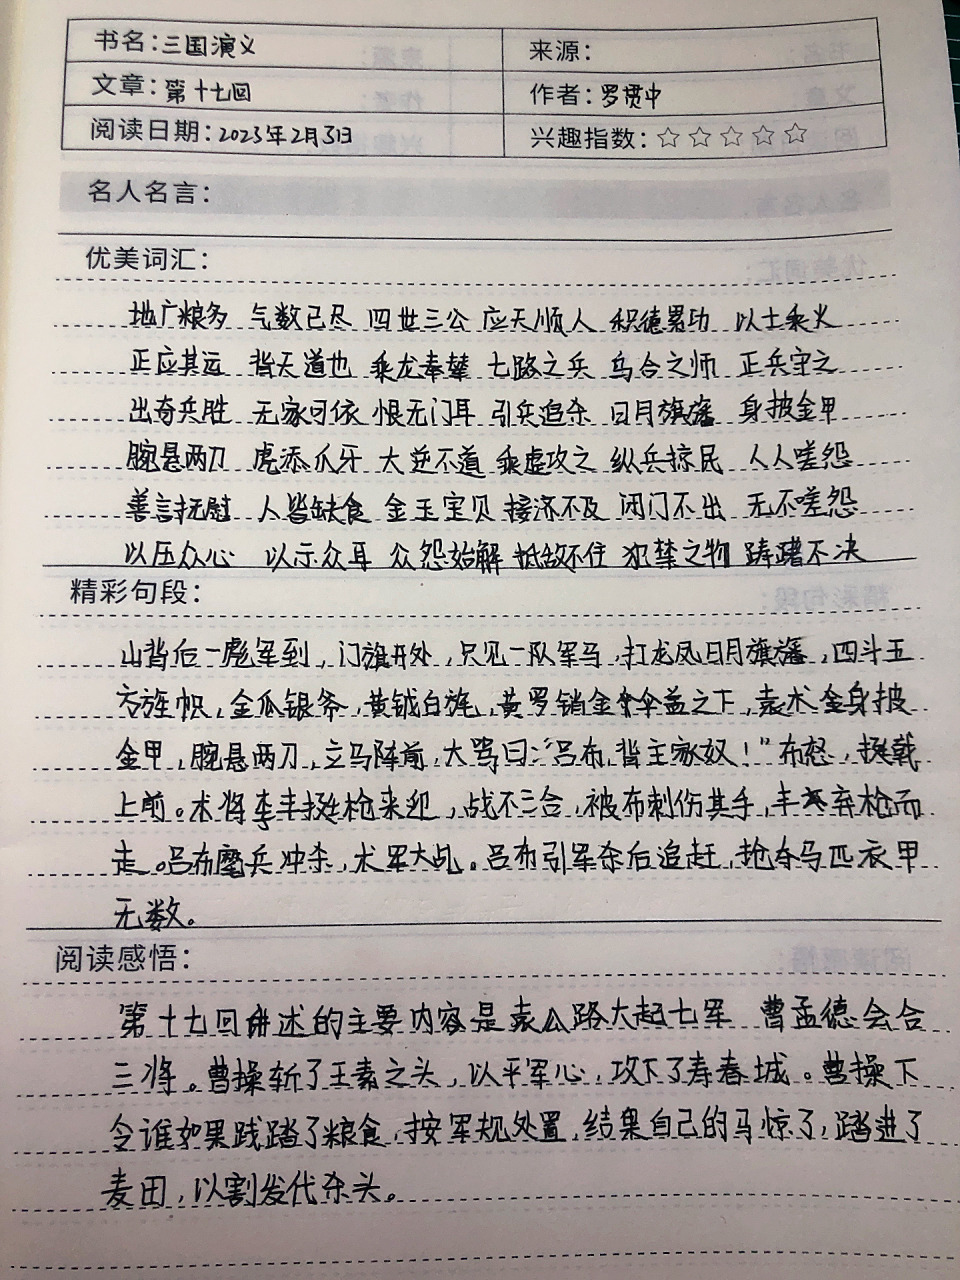 书名：三国演义 来源：
文章：第十七回 作者：罗贯中
阅读日期：2023年2月3日 兴趣指数：☆☆☆☆☆
名人名言：
优美词汇：
地广粮多 气数已尽 四世三公 应天顺人 积德累功 以土乘火
正应其运 背天道也 乘龙奉辇 七路之兵 乌合之师 正兵守之
出奇兵胜 无家可依 恨无门耳 引兵追杀 日月旗旛 身披金甲
腕悬两刀 虎添爪牙 大逆不道 乘虚攻之 纵兵掠民 人人嗟怨
善言抚慰 人皆缺食 金玉宝贝 接济不及 闭门不出 无不嗟怨
以压众心 以示众耳 众怨始解 抵敌不住 犯禁之物 踌躇不决
精彩句段：
山背后一彪军到，门旗开处，只见一队军马，打龙凤日月旗旛，四斗五
方旌帜，金瓜银斧，黄钺白旄，黄罗销金伞盖之下，袁术金身披
金甲，腕悬两刀，立马阵前，大骂曰：“吕布，背主家奴！”布怒，挺戟
上前。术将李丰挺枪来迎，战不三合，被布刺伤其手，丰弃枪而
走。吕布麾兵冲杀，术军大乱。吕布引军杀后追赶，抢夺马匹衣甲
无数。
阅读感悟：
第十七回讲述的主要内容是袁公路大起七军 曹孟德会合
三将。曹操斩了王素之头，以平军心，攻下了寿春城。曹操下
令谁如果践踏了粮食，按军规处置，结果自己的马惊了，踏进了
麦田，以割发代杀头。